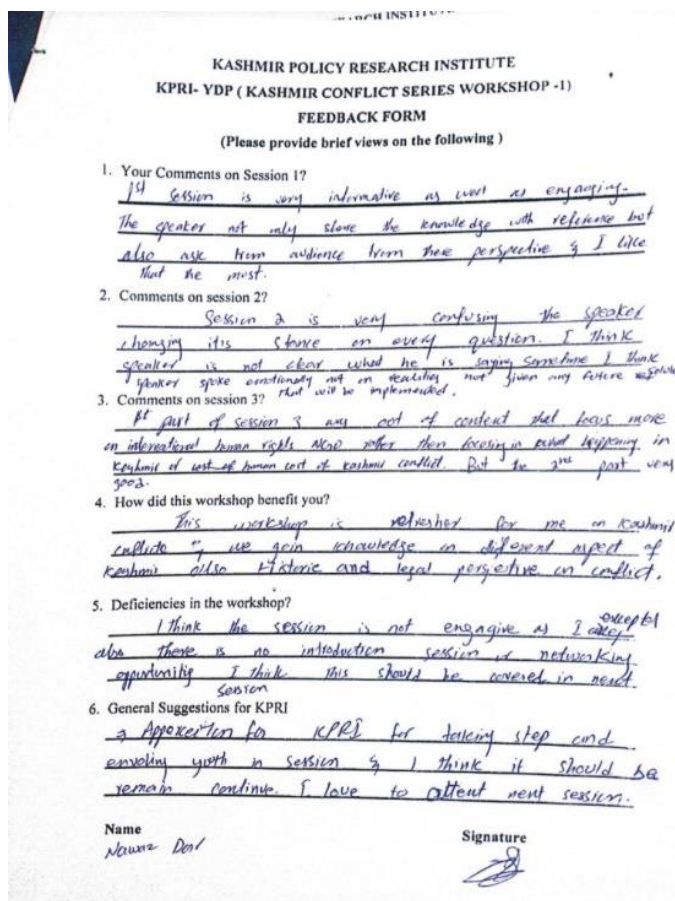 KASHMIR POLICY RESEARCH INSTITUTE
KPRI- YDP ( KASHMIR CONFLICT SERIES WORKSHOP -1)
FEEDBACK FORM
(Please provide brief views on the following )
1. Your Comments on Session 1?
1st Session is very informative as well as engaging.
The speaker not only share the knowledge with reference but
also ask from audience from there perspective & I like
that the most.
2. Comments on session 2?
Session 2 is very confusing the speaker
changing its stance on every question. I think
speaker is not clear what he is saying Sometime I think
speaker spoke emotionally not on realities not given any future
that will be implemented.
3. Comments on session 3?
1st part of session 3 out of content that focus more
on international human rights rather then focusing in happening in
Kashmir of human cost of kashmir conflict. But the 2nd part very
good.
4. How did this workshop benefit you?
This workshop is refresher for me on Kashmir
we gain knowledge on different aspect of
Kashmir also Historic and legal on conflict.
5. Deficiencies in the workshop?
I think the session is not engagive as I
also there is no introduction session or networking
I think this should be covered in next
session
6. General Suggestions for KPRI
for KPRI for taking step and
youth in session & I think it should be
remain continue. I love to attent next session.
Name
Nawaz
Signature